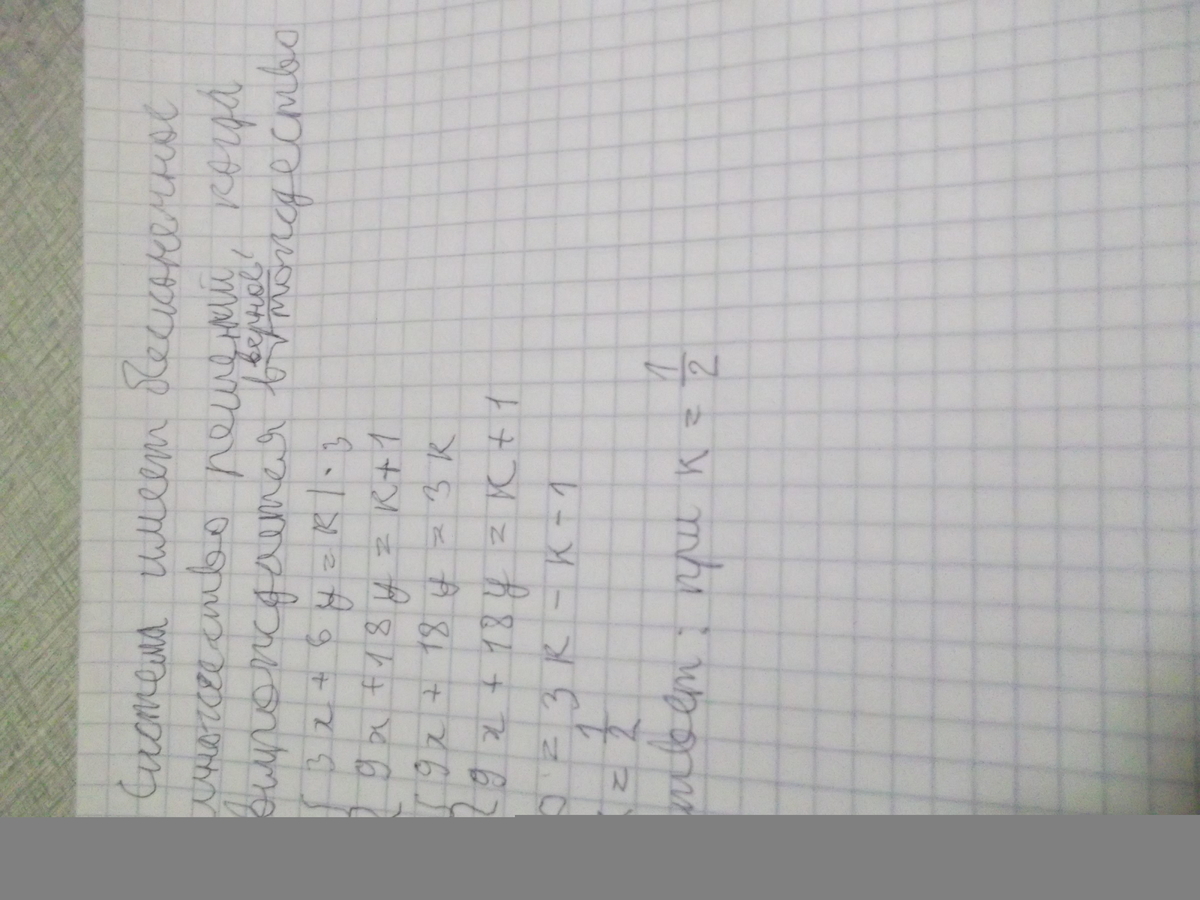 Система имеет бесконечное
множество решений, когда
вырождается в верное тождество
{ 3x + 6y = к | · 3
{ 9x + 18y = к + 1
{ 9x + 18y = 3к
{ 9x + 18y = к + 1
0 = 3к - к - 1
= 1/2
твет: при к = 1/2